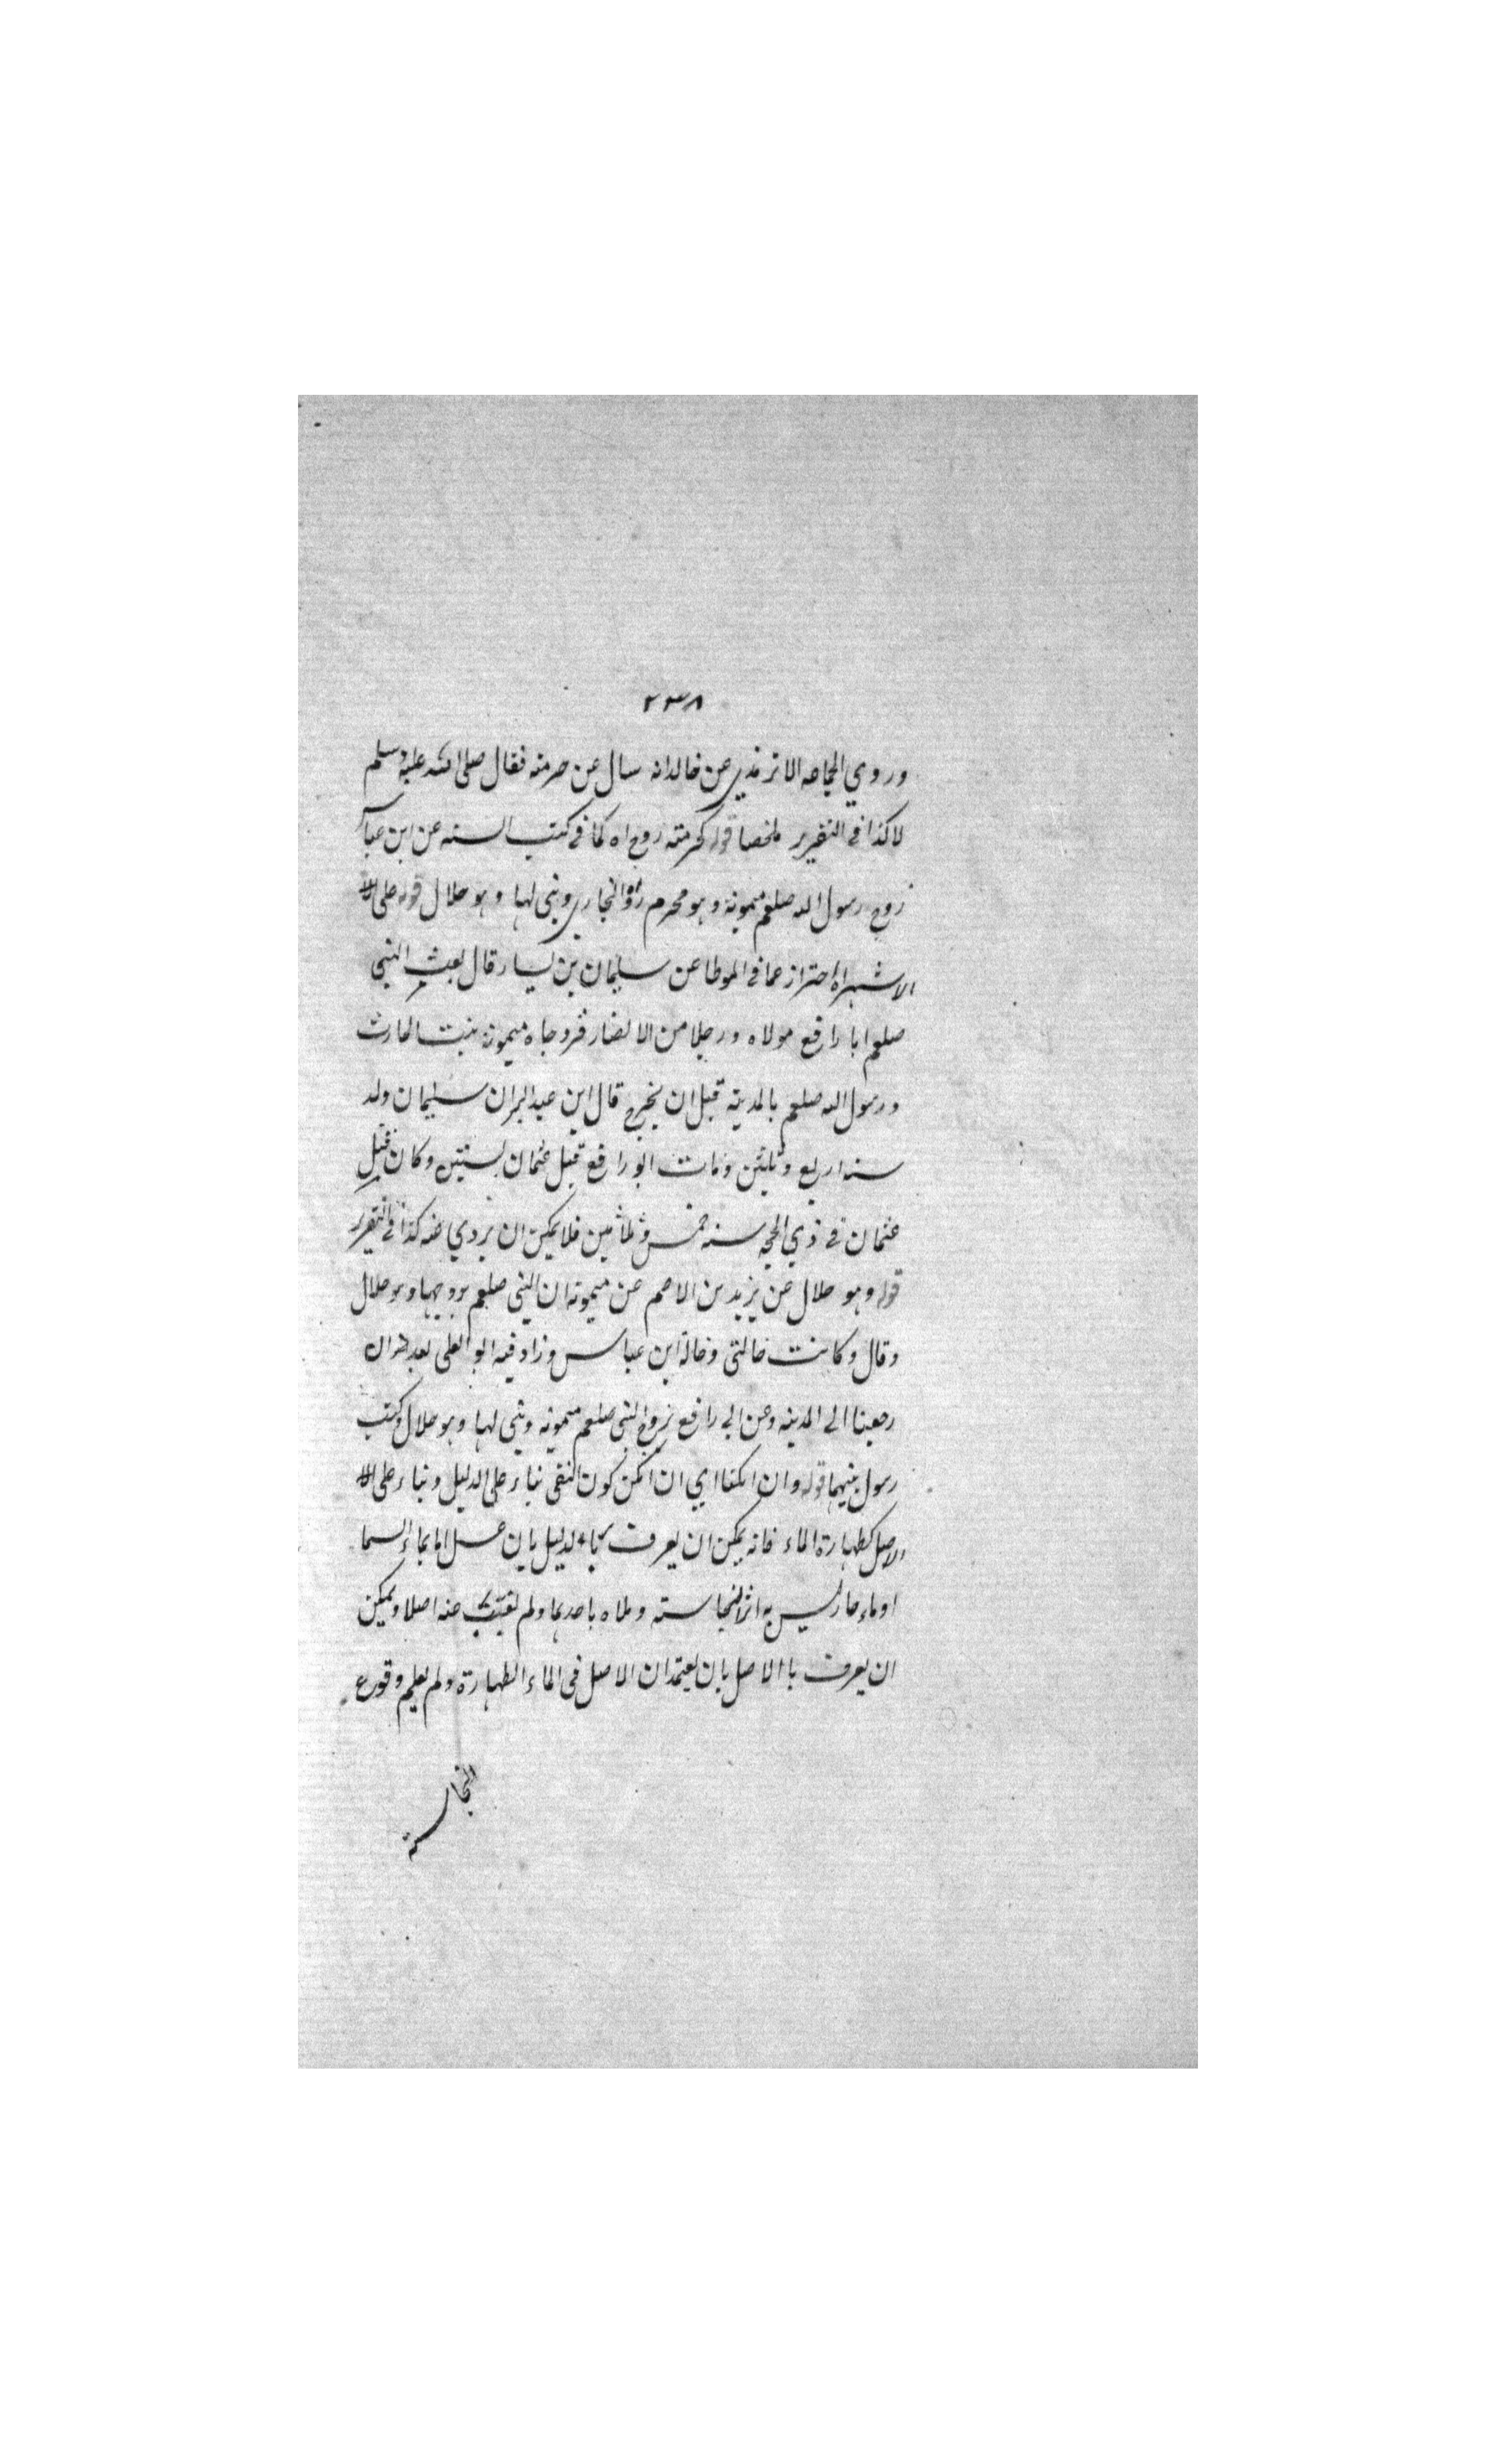 ٢٣٨
وروي الجماعه الا ترمذي عن خالد انه سال عن حرمته فقال صلى الله عليه وسلم
لا كذا في التقرير ملخصا قوله كحرمته زوج اه كما في كتب السته عن ابن عباس
زوج رسول الله صلعم ميمونة وهو محرم زاد البخاري وبنى لها وهو حلال قوله على الا
الاشهر اه احتراز عما في الموطا عن سليمان بن يسار قال بعث النبي
صلعم ابا رافع مولاه ورجلا من الانصار فزوجاه ميمونة بنت الحارث
ورسول الله صلعم بالمدينة قبل ان يخرج قال ابن عبد البر ان سليمان ولد
سنه اربع وثلثين ومات ابو رافع قبل عثمان بسنتين وكان قتل
عثمان في ذي الحجه سنه خمس وثلاثين فلا يمكن ان يروي عنه كذا في التقرير
قوله وهو حلال عن يزيد بن الاصم عن ميمونة ان النبي صلعم تزوجها وهو حلال
وقال وكانت خالتي وخالة ابن عباس وزاد فيه ابو العلى بعد ان
رجعنا الى المدينه وعن ابي رافع تزوج النبي صلعم ميمونه وبنى لها وهو حلال وكنت
رسول بينهما قوله وان امكنا اي ان امكن كون النفي بناء على الدليل وبناء على الا
الاصل كطهارة الماء فانه يمكن ان يعرف بالدليل بان غسل انا بماء السما
او ماء جار ليس به اثر النجاسته وملاه باحدهما ولم يغب عنه اصلا ويمكن
ان يعرف با الاصل بان يعتمد ان الاصل في الماء الطهارة ولم يعلم وقوع
النجاسة